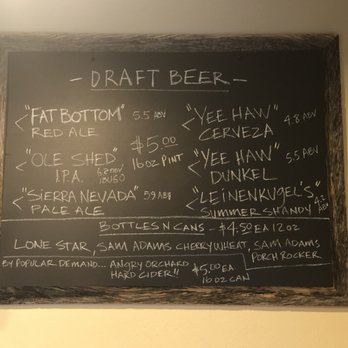 - DRAFT BEER -
"FAT BOTTOM" 5.5 ABV
RED ALE
"OLE SHED"
I.P.A.
"SIERRA NEVADA" 5.9 ABV
PALE ALE
$5.00
16 OZ PINT
"YEE HAW" 4.8 ABV
CERVEZA
"YEE HAW" 5.5 ABV
DUNKEL
"LEINENKUGEL'S"
SUMMER SHANDY
BOTTLES N CANS - $4.50 EA 12 OZ
LONE STAR, SAM ADAMS CHERRY WHEAT, SAM ADAMS
PORCH ROCKER
BY POPULAR DEMAND... ANGRY ORCHARD $5.00 EA
HARD CIDER!! 16 OZ CAN